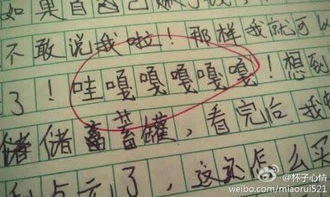 如果自己
不敢说我啦！那样我就可以
了！哇嘎嘎嘎嘎嘎！想到
储储蓄蓄罐，看完后我
点了，这还怎么买
@杯子心情
weibo.com/miaorui521